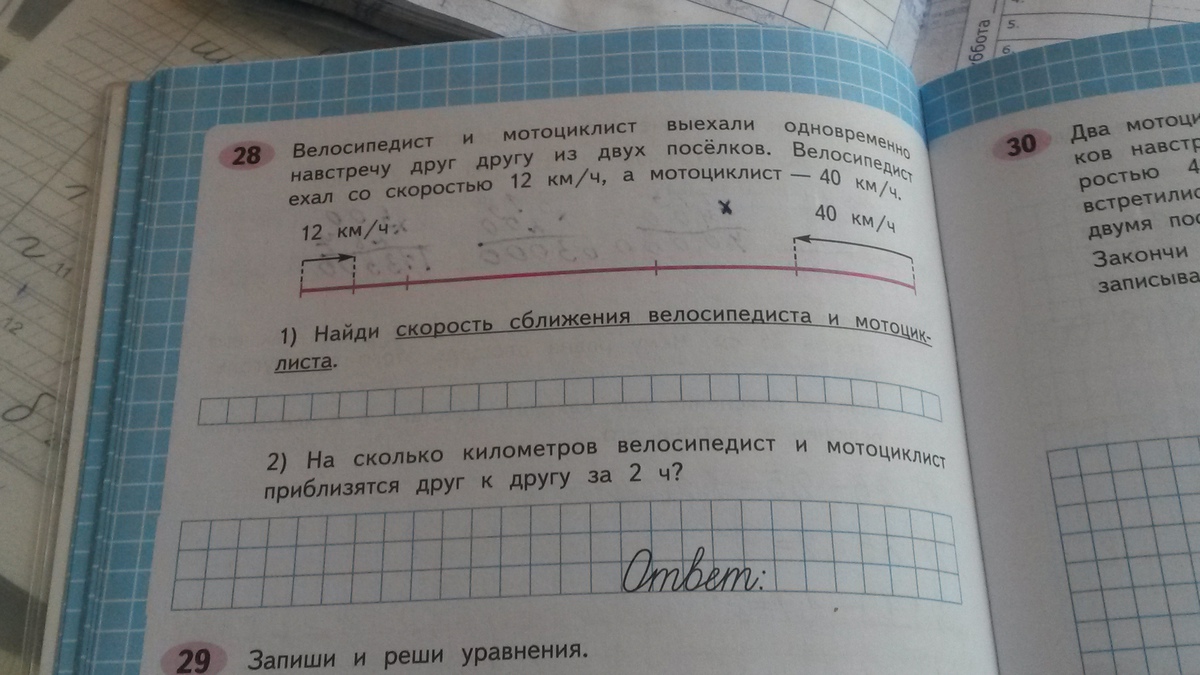 уббота
4.
5.
6.
28 Велосипедист и мотоциклист выехали одновременно
навстречу друг другу из двух посёлков. Велосипедист
ехал со скоростью 12 км/ч, а мотоциклист — 40 км/ч.
12 км/ч
x
40 км/ч
1) Найди скорость сближения велосипедиста и мотоцик-
листа.
2) На сколько километров велосипедист и мотоциклист
приблизятся друг к другу за 2 ч?
Ответ:
29 Запиши и реши уравнения.
30 Два мотоци
ков навстр
ростью 4
встретилис
двумя пос
Закончи
записыва
11
12